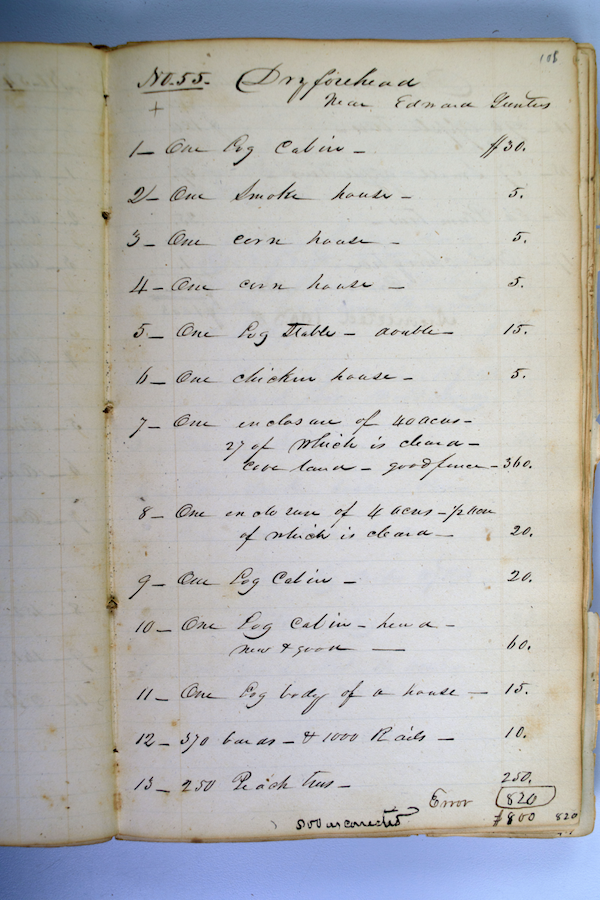 108
No. 55. Dryforehead
Near Edward Gunters
+
1 - One Log Cabin - $30.
2 - One Smoke house - 5.
3 - One corn house - 5.
4 - One corn house - 5.
5 - One Log Stable - double - 15.
6 - One chicken house - 5.
7 - One enclosure of 40 acres -
27 of which is cleard -
cove land - good fence - 360.
8 - One enclosure of 4 acres -
of which is cleard - 20.
9 - One Log Cabin - 20.
10 - One Log Cabin - hewd -
new & good - 60.
11 - One Log body of a house - 15.
12 - 370 boards - & 1000 Rails - 10.
13 - 250 Peach trees - 250.
Error 820
$800 820
as corrected